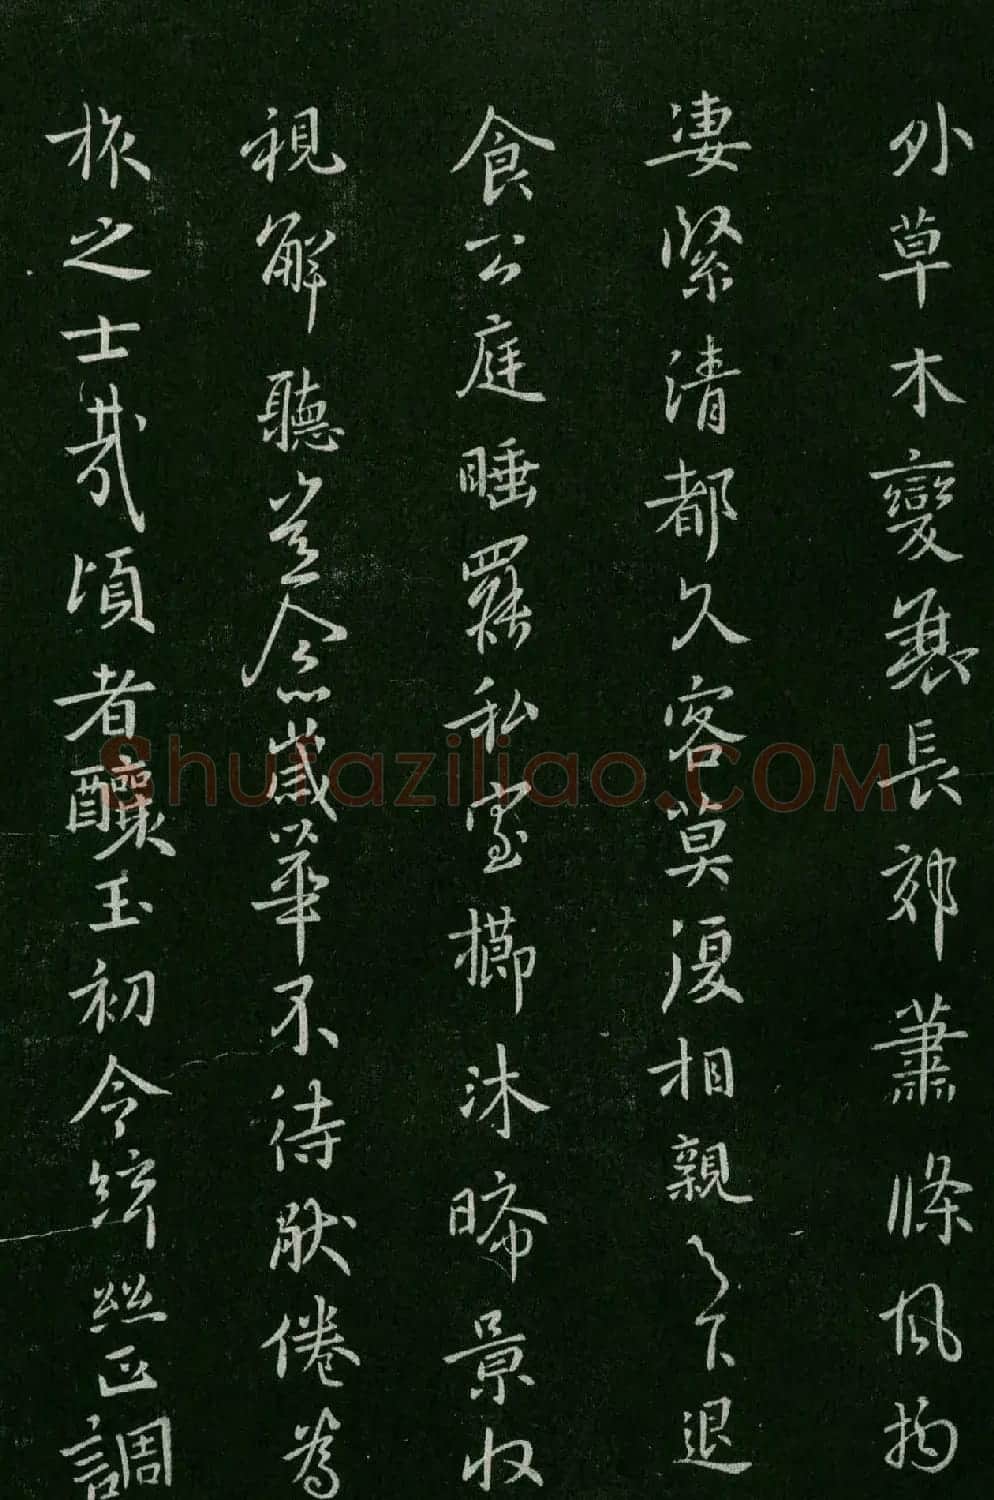 外草木變衰長郊蕭條風物
凄緊清都久客莫復相親下退
食公庭睡罷私室櫛沐晞景收
視解聽念歲華不待猒倦為
旅之士哉頃者釀玉初令絲正調
Shufaziliao.COM